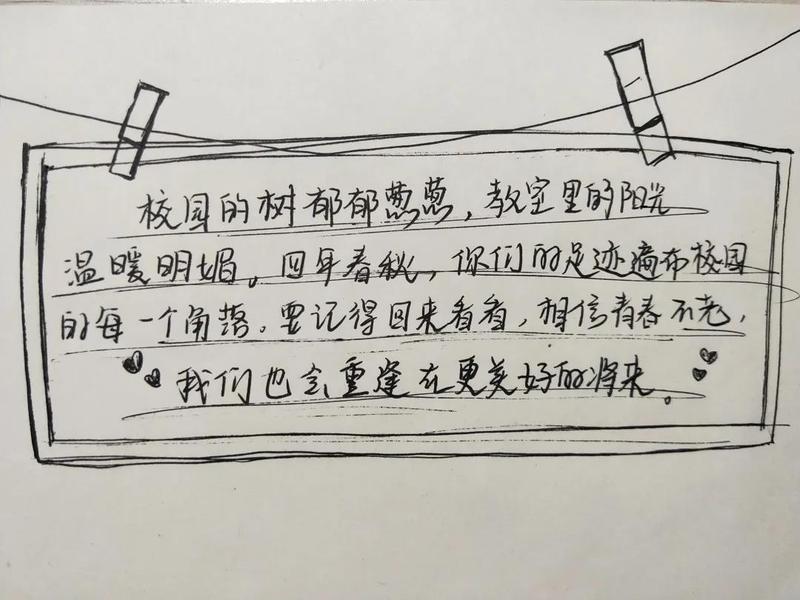 校园的树郁郁葱葱，教室里的阳光
温暖明媚。四年春秋，你们的足迹遍布校园
的每一个角落。要记得回来看看，相信青春不老，
我们也会重逢在更美好的将来。